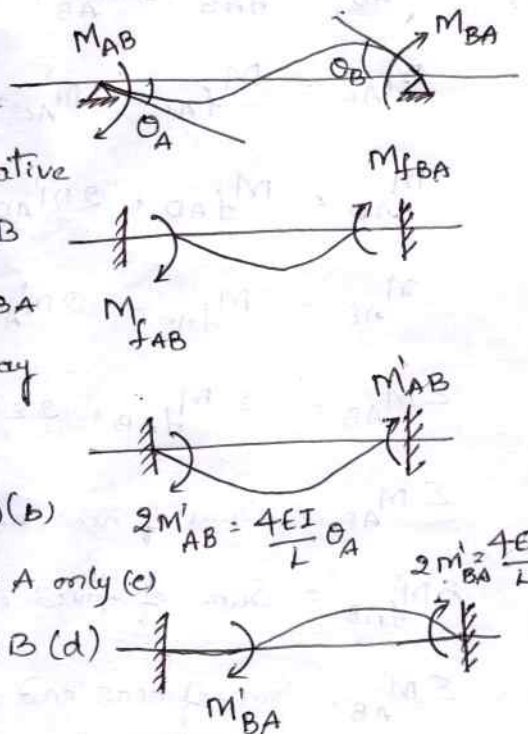 M_AB M_BA
θ_B
θ_A
ative M_fBA
B
BA M_fAB
ay
M'_AB
)(b) 2M'_AB = 4EI/L θ_A
A only (c) 2M'_BA = 4E/L
B (d)
M'_BA